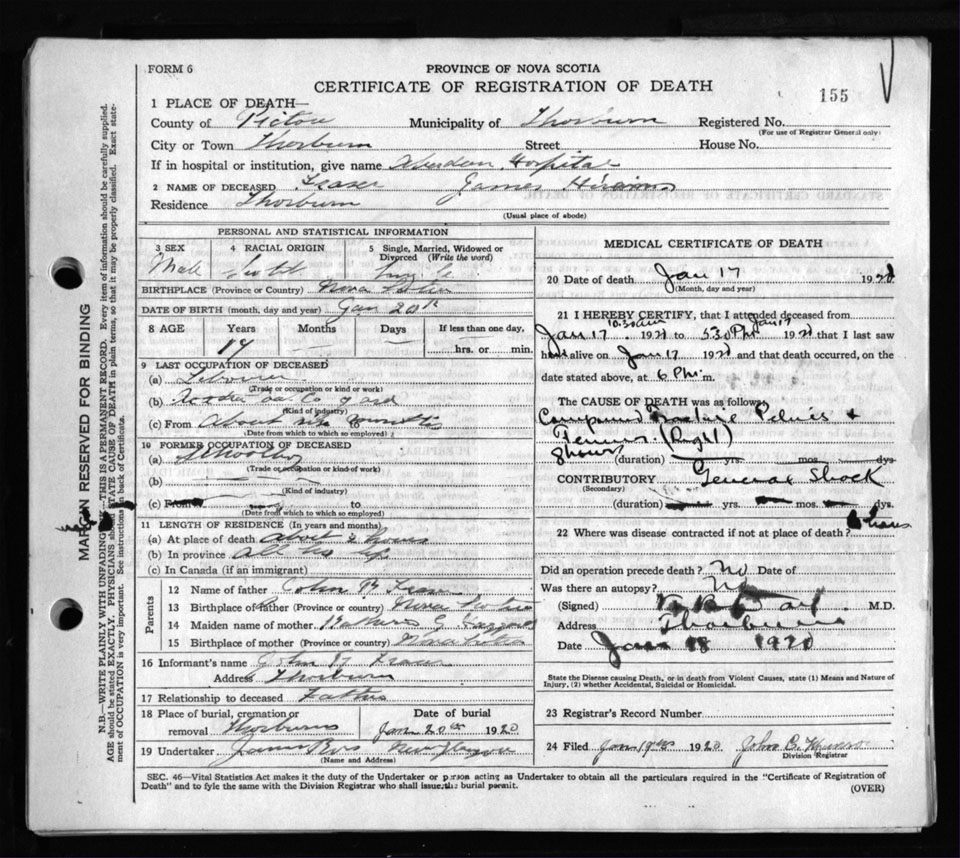 FORM 6
PROVINCE OF NOVA SCOTIA
CERTIFICATE OF REGISTRATION OF DEATH
155
1 PLACE OF DEATH—
County of Pictou Municipality of Thorburn Registered No.
(For use of Registrar General only)
City or Town Thorburn Street House No.
If in hospital or institution, give name Aberdeen Hospital
2 NAME OF DECEASED Fraser James Hiram
Residence Thorburn
(Usual place of abode)
PERSONAL AND STATISTICAL INFORMATION
3 SEX 4 RACIAL ORIGIN 5 Single, Married, Widowed or Divorced (Write the word)
Male Scotch Single
BIRTHPLACE (Province or Country) Nova Scotia
DATE OF BIRTH (month, day and year) Jan 20th
8 AGE Years Months Days If less than one day,
17 — — hrs. or min.
9 LAST OCCUPATION OF DECEASED
(a) Labourer
(Trade or occupation or kind or work)
(b)
(Kind of industry)
(c) From About to months
(Date from which to which so employed)
10 FORMER OCCUPATION OF DECEASED
(a) Schoolboy
(Trade or occupation or kind of work)
(b)
(Kind of industry)
(c) From to
(Date from which to which so employed)
11 LENGTH OF RESIDENCE (In years and months)
(a) At place of death About 2 hours
(b) In province All his life
(c) In Canada (if an immigrant)
Parents
12 Name of father Fraser
13 Birthplace of father (Province or country) Nova Scotia
14 Maiden name of mother
15 Birthplace of mother (Province or country) Nova Scotia
16 Informant's name Fraser
Address Thorburn
17 Relationship to deceased Father
18 Place of burial, cremation or removal Thorburn Date of burial Jan 20th 1920
19 Undertaker James Bros New Glasgow
(Name and Address)
MEDICAL CERTIFICATE OF DEATH
20 Date of death Jan 17 192
(Month, day and year)
21 I HEREBY CERTIFY, that I attended deceased from
10.30 am Jan 17
Jan 17 192 to 5.30 PM 192 that I last saw
h alive on Jan 17 192 and that death occurred, on the
date stated above, at 6 PM m.
The CAUSE OF DEATH was as follows:
Compound Fracture Pelvis +
Femur. (Right)
8 hours (duration) yrs. mos. dys.
CONTRIBUTORY General Shock
(Secondary)
(duration) yrs. mos. dys.
hours
22 Where was disease contracted if not at place of death?
Did an operation precede death? No Date of
Was there an autopsy? No
(Signed) M.D.
Address Thorburn
Date Jan 18 1920
State the Disease causing Death, or in death from Violent Causes, state (1) Means and Nature of Injury, (2) whether Accidental, Suicidal or Homicidal.
23 Registrar's Record Number
24 Filed Jan 19th 1920 John
Division Registrar
SEC. 46—Vital Statistics Act makes it the duty of the Undertaker or person acting as Undertaker to obtain all the particulars required in the "Certificate of Registration of
Death" and to fyle the same with the Division Registrar who shall issue the burial permit.
(OVER)
MARGIN RESERVED FOR BINDING
N.B.—WRITE PLAINLY WITH UNFADING —THIS IS A PERMANENT RECORD. Every item of information should be carefully supplied.
AGE should be stated EXACTLY. PHYSICIANS should STATE CAUSE OF DEATH in plain terms, so that it may be properly classified. Exact state-
ment of OCCUPATION is very important. See instructions on back of Certificate.